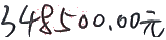 348500.00元